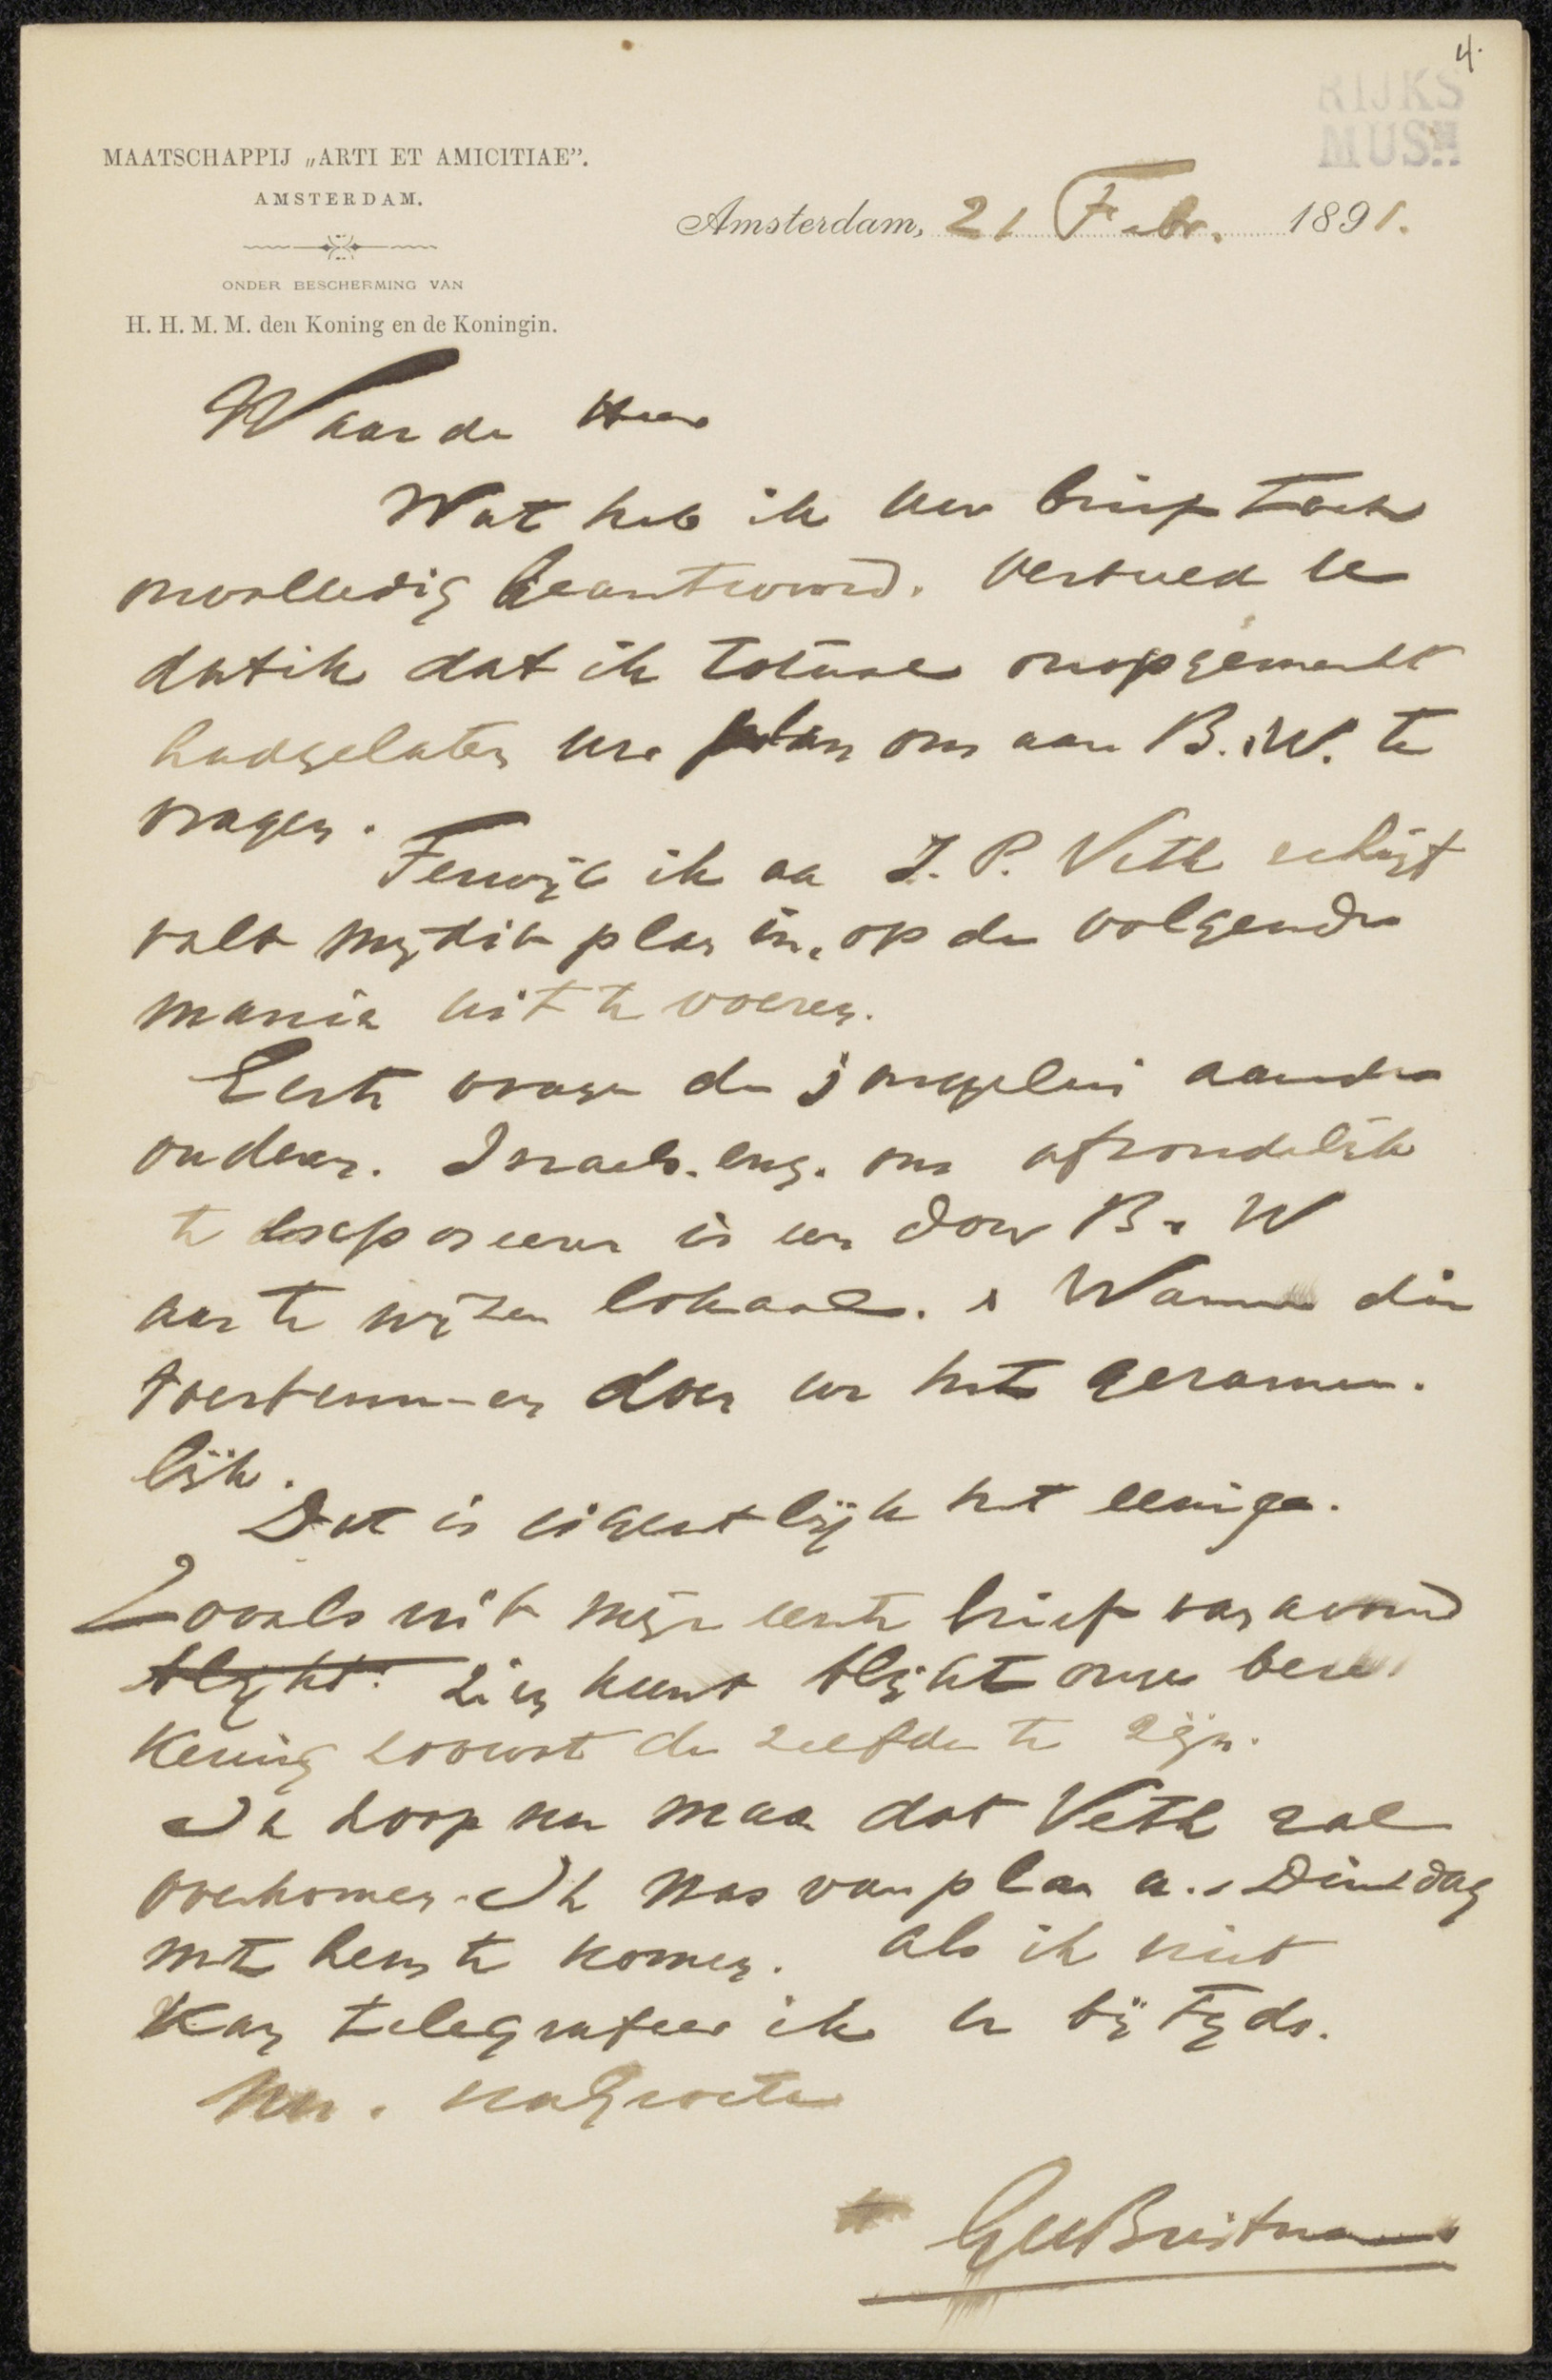 4.
RIJKS
MUSM
MAATSCHAPPIJ „ARTI ET AMICITIAE”.
AMSTERDAM.
ONDER BESCHERMING VAN
H. H. M. M. den Koning en de Koningin.
Amsterdam, 21 Febr. 1891.
Waarde Heer
Wat heb ik uw brief toch
onvolledig beantwoord. Verbeeld U
dat ik dat ik totaal onopgemerkt
had gelaten uw plan om aan B. & W. te
vragen.
Terwijl ik aa J. P. Veth schrijf
valt mij dit plan in, op de volgende
manier uit te voeren.
Eerst vragen de jongelui aan de
ouderen. Israels. enz. om afzonderlijk
te exposeeren in een door B & W
aan te wijzen lokaal. & Wanneer die
toestemmen doen we het gezamen.
lijk.
Dat is eigentlijk het eenige.
Zooals uit mijn eerste brief van avond
blijkt. zien kunt blijkt onze bere
kening zoowat de zelfde te zijn.
Ik hoop nu maar dat Veth zal
overkomen. Ik was van plan a.s Dinsdag
met hem te komen. Als ik niet
kan telegrafeer ik U bij tijds.
Na groeten
GH Breitner